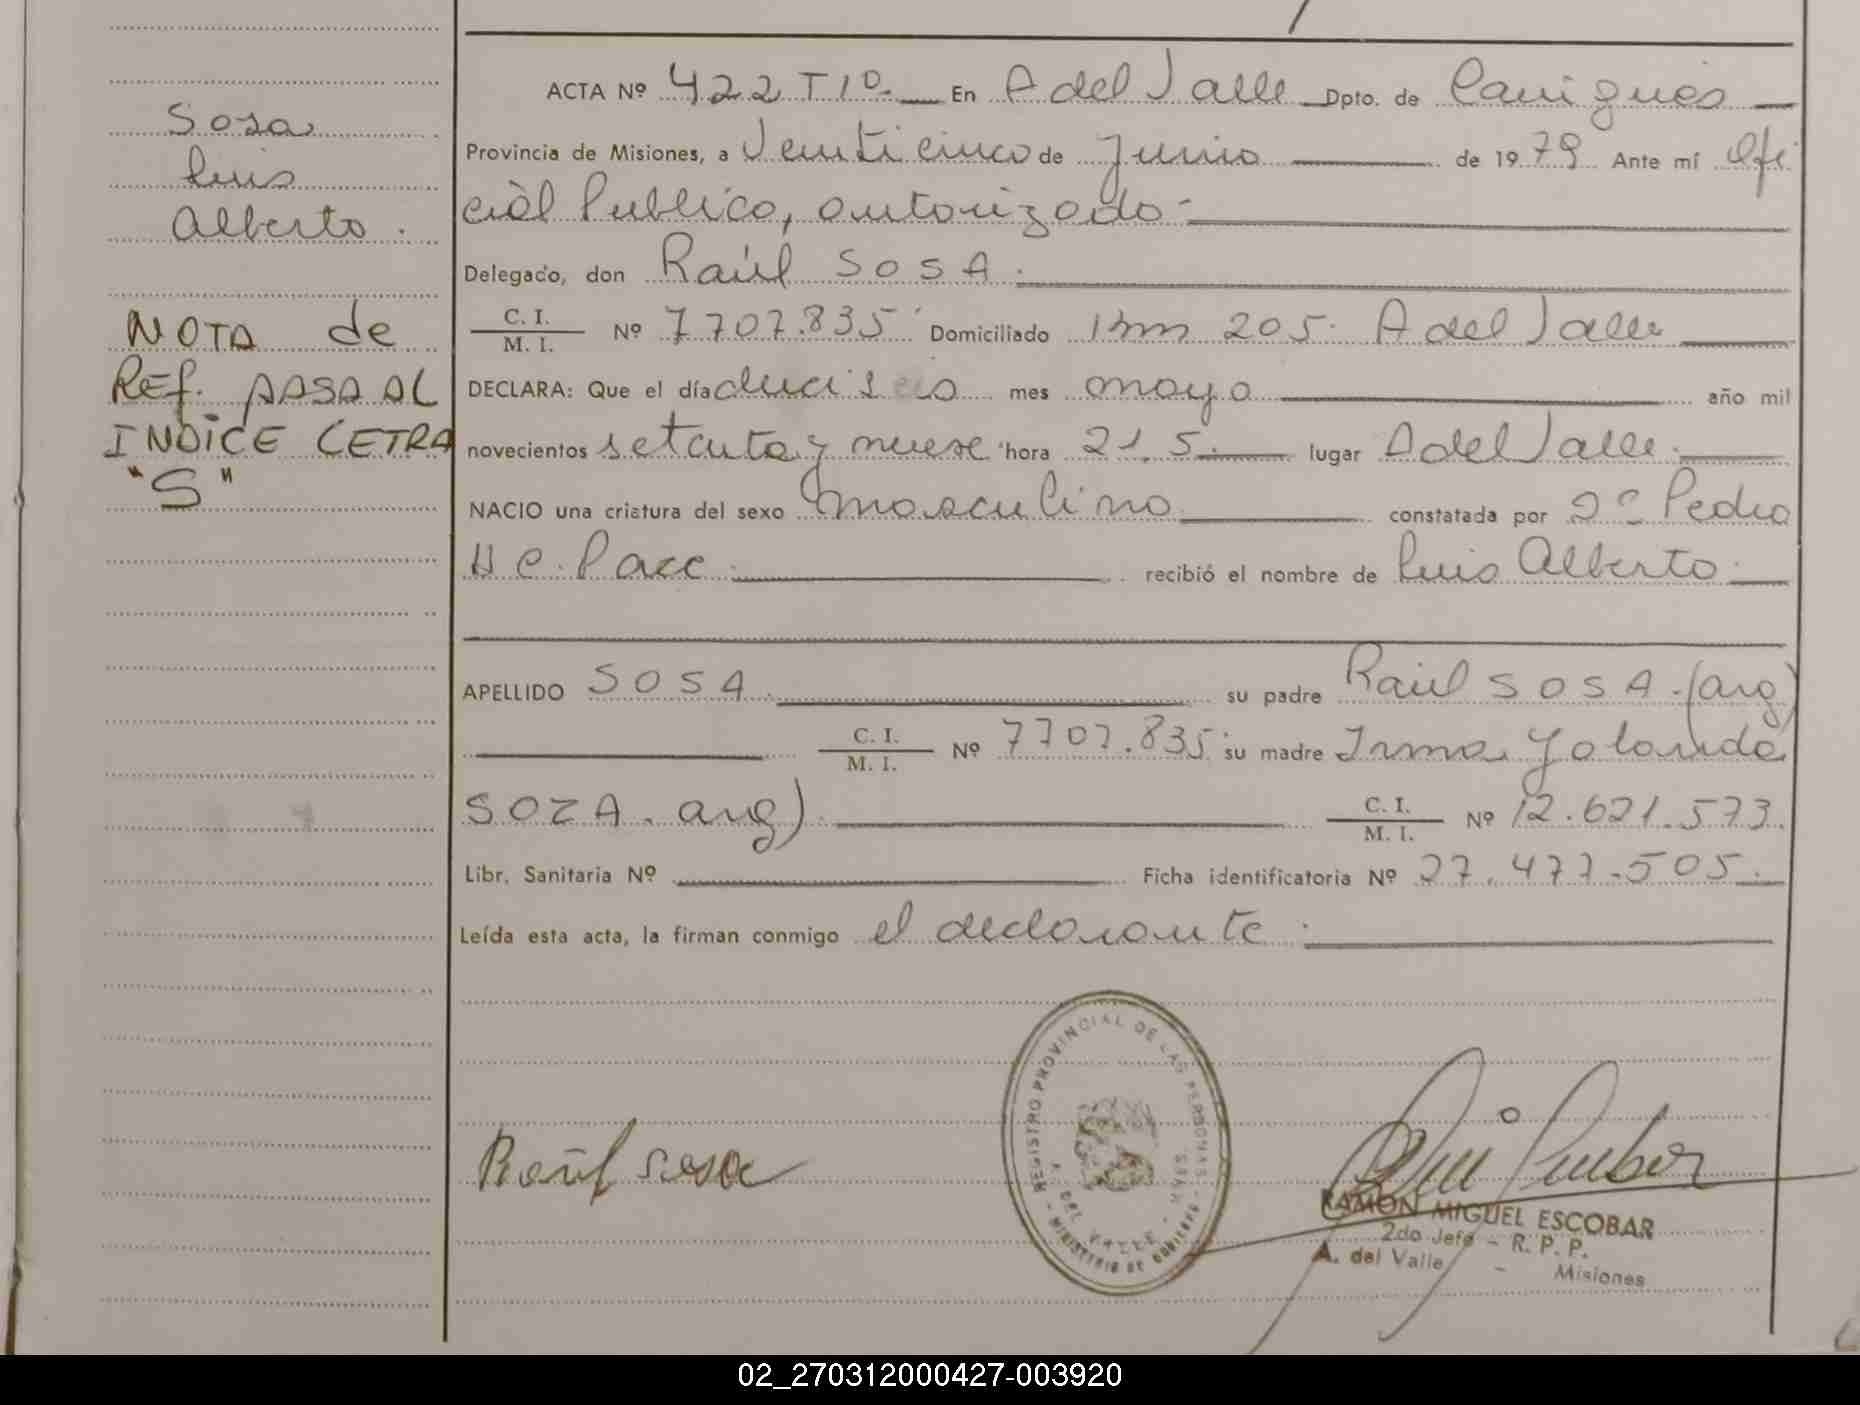 Sosa
Luis
Alberto.
NOTA de
REf. PASA AL
INDICE LETRA
"S"
ACTA Nº 422 T 1º. En A del Valle Dpto. de Cainguás
Provincia de Misiones, a Venticinco de Junio de 1979 Ante mí Ofi
cial Publico, autorizado
Delegado, don Raúl SOSA.
C. I.
M. I.
Nº 7707.835 Domiciliado Km 205. A del Valle
DECLARA: Que el día dieciseis mes mayo año mil
novecientos setenta y nueve hora 21.5 lugar A del Valle.
NACIO una criatura del sexo masculino constatada por Pedro
recibió el nombre de Luis Alberto.
APELLIDO SOSA. su padre Raúl SOSA. (arg)
C. I.
M. I.
Nº 7707.835 su madre Irma Yolanda
SOZA. arg)
C. I.
M. I.
Nº 12.621.573.
Libr. Sanitaria Nº Ficha identificatoria Nº 27.477.505.
Leída esta acta, la firman conmigo el declarante.
REGISTRO PROVINCIAL DE LAS PERSONAS
A. DEL VALLE
MINISTERIO DE GOBIERNO
Raúl Sosa
RAMON MIGUEL ESCOBAR
2do Jefe - R. P. P.
A. del Valle - Misiones
02_270312000427-003920